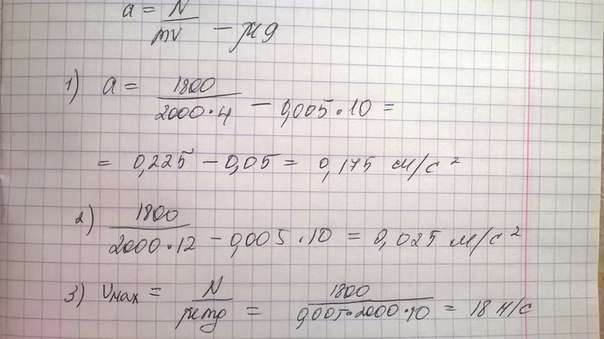 a = N/mv − μg
1) a = 1800/(2000·4) − 0,005·10 =
= 0,225 − 0,05 = 0,175 м/с²
2) 1800/(2000·12) − 0,005·10 = 0,025 м/с²
3) υмах = N/μmg = 1800/(0,005·2000·10) = 18 м/с